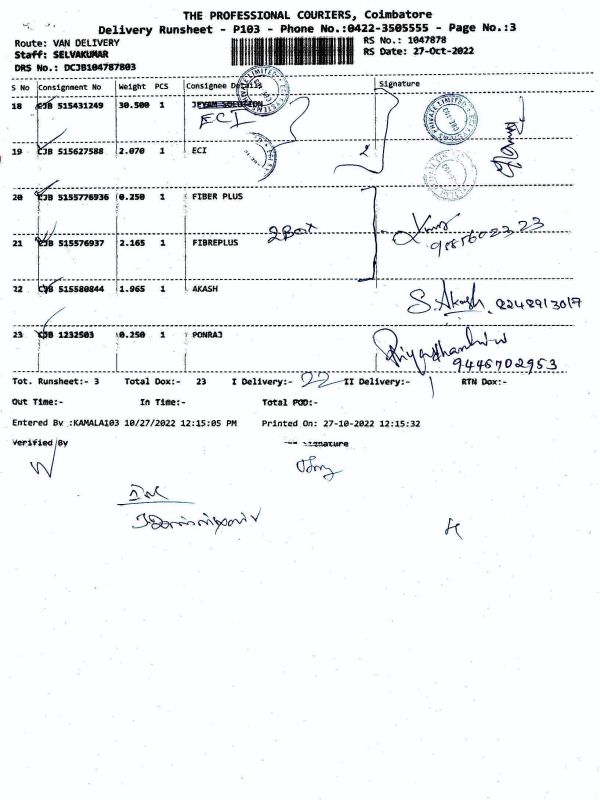 THE PROFESSIONAL COURIERS, Coimbatore
Delivery Runsheet - P103 - Phone No.:0422-3505555 - Page No.:3
Route: VAN DELIVERY RS No.: 1047878
Staff: SELVAKUMAR RS Date: 27-Oct-2022
DRS No.: DCJB104787803
S No Consignment No Weight PCS Consignee Details Signature
18 CJB 515431249 30.500 1 JEYAM SOLUTION
ECI
19 CJB 515627588 2.070 1 ECI 2
20 CJB 5155776936 0.250 1 FIBER PLUS
21 CJB 515576937 2.165 1 FIBREPLUS 2 Box
22 CJB 515580844 1.965 1 AKASH S. Akash
23 CJB 1232503 0.250 1 PONRAJ
9446702953
Tot. Runsheet:- 3 Total Dox:- 23 I Delivery:- 22 II Delivery:- 1 RTN Dox:-
Out Time:- In Time:- Total POD:-
Entered By :KAMALA103 10/27/2022 12:15:05 PM Printed On: 27-10-2022 12:15:32
Verified By Signature